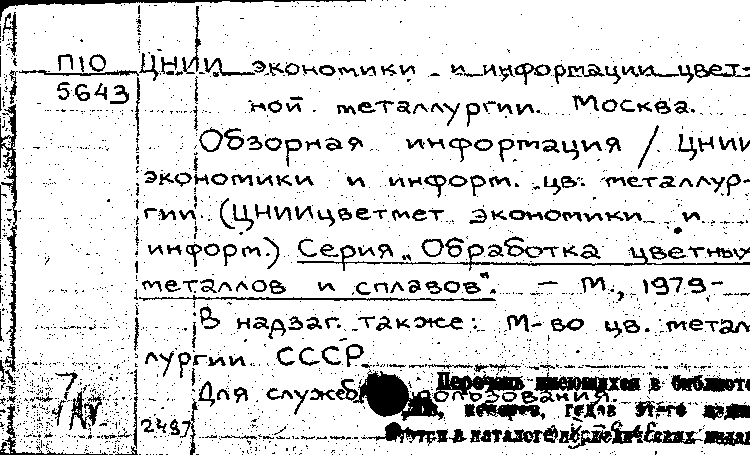 П10 ЦНИИ экономики и информации цвет-
5643 ной металлургии. Москва.
Обзорная информация / ЦНИИ
экономики и информ. цв. металлур-
гии (ЦНИИцветмет экономики и
информ.) Серия „Обработка цветных
металлов и сплавов". – М., 1979-
В надзаг. также: М-во цв. метал
лургии СССР.
Для служебн пользования.
Перечень имеющихся в библиоте
номеров, годов этого издан
смотри в каталоге периодических издан
2497